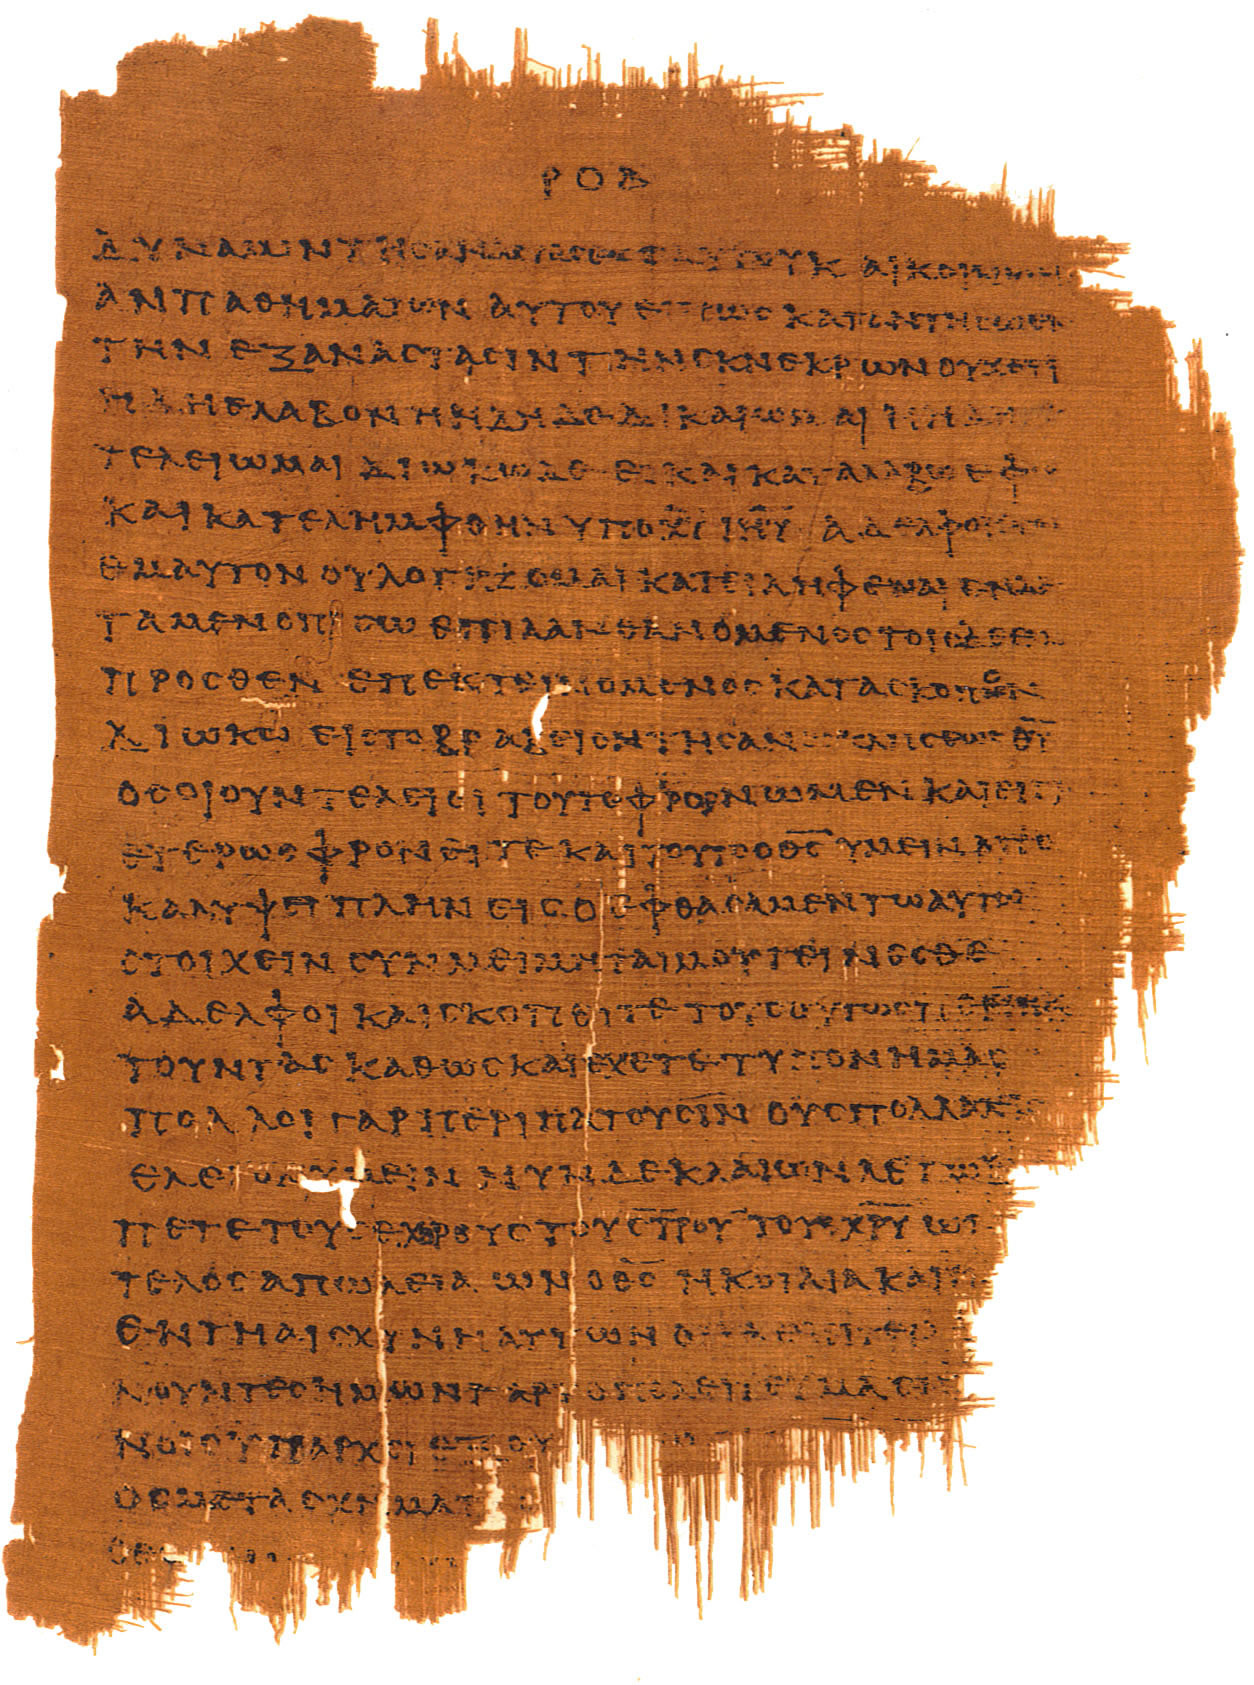 ΡΟΒ
ΔΥΝΑΜΙΝ ΤΗΣ ΑΝΑΣΤΑΣΕΩΣ ΑΥΤΟΥ ΚΑΙ ΚΟΙΝΩΝΙ
ΑΝ ΠΑΘΗΜΑΤΩΝ ΑΥΤΟΥ ΕΙ ΠΩΣ ΚΑΤΑΝΤΗΣΩ ΕΙΣ
ΤΗΝ ΕΞΑΝΑΣΤΑΣΙΝ ΤΗΝ ΕΚ ΝΕΚΡΩΝ ΟΥΧ ΟΤΙ
ΗΔΗ ΕΛΑΒΟΝ Η ΗΔΗ ΔΕΔΙΚΑΙΩΜΑΙ Η ΗΔΗ
ΤΕΛΕΙΩΜΑΙ ΔΙΩΚΩ ΔΕ ΕΙ ΚΑΙ ΚΑΤΑΛΑΒΩ ΕΦ Ω
ΚΑΙ ΚΑΤΕΛΗΜΦΘΗΝ ΥΠΟ ΧΡΥ ΙΗΥ ΑΔΕΛΦΟΙ ΕΓΩ
ΕΜΑΥΤΟΝ ΟΥ ΛΟΓΙΖΟΜΑΙ ΚΑΤΕΙΛΗΦΕΝΑΙ ΕΝ ΔΕ
ΤΑ ΜΕΝ ΟΠΙΣΩ ΕΠΙΛΑΝΘΑΝΟΜΕΝΟΣ ΤΟΙΣ ΔΕ ΕΜ
ΠΡΟΣΘΕΝ ΕΠΕΚΤΕΙΝΟΜΕΝΟΣ ΚΑΤΑ ΣΚΟΠΟΝ
ΔΙΩΚΩ ΕΙΣ ΤΟ ΒΡΑΒΕΙΟΝ ΤΗΣ ΑΝΩ ΚΛΗΣΕΩΣ ΘΥ
ΟΣΟΙ ΟΥΝ ΤΕΛΕΙΟΙ ΤΟΥΤΟ ΦΡΟΝΩΜΕΝ ΚΑΙ ΕΙ ΤΙ
ΕΤΕΡΩΣ ΦΡΟΝΕΙΤΕ ΚΑΙ ΤΟΥΤΟ Ο ΘΣ ΥΜΕΙΝ ΑΠΟ
ΚΑΛΥΨΕΙ ΠΛΗΝ ΕΙΣ Ο ΕΦΘΑΣΑΜΕΝ ΤΩ ΑΥΤΩ
ΣΤΟΙΧΕΙΝ ΣΥΝΜΕΙΜΗΤΑΙ ΜΟΥ ΓΕΙΝΕΣΘΕ
ΑΔΕΛΦΟΙ ΚΑΙ ΣΚΟΠΕΙΤΕ ΤΟΥΣ ΟΥΤΩΣ ΠΕΡΙΠΑ
ΤΟΥΝΤΑΣ ΚΑΘΩΣ ΚΑΙ ΕΧΕΤΕ ΤΥΠΟΝ ΗΜΑΣ
ΠΟΛΛΟΙ ΓΑΡ ΠΕΡΙΠΑΤΟΥΣΙΝ ΟΥΣ ΠΟΛΛΑΚΙΣ
ΕΛΕΓΟΝ ΥΜΕΙΝ ΝΥΝ ΔΕ ΚΛΑΙΩΝ ΛΕΓΩ
ΠΕΤΕ ΤΟΥΣ ΕΧΘΡΟΥΣ ΤΟΥ ΣΤΡΟΥ ΤΟΥ ΧΡΥ ΩΝ
ΤΕΛΟΣ ΑΠΩΛΕΙΑ ΩΝ Ο ΘΣ Η ΚΟΙΛΙΑ ΚΑΙ Η
ΕΝ ΤΗ ΑΙΣΧΥΝΗ ΑΥΤΩΝ
ΝΟΥΝΤΕΣ ΗΜΩΝ ΓΑΡ ΤΟ ΠΟΛΕΙΤΕΥΜΑ ΕΝ
ΝΟΙΣ ΥΠΑΡΧΕΙ ΕΞ ΟΥ
ΟΣ ΜΕΤΑΣΧΗΜΑΤ